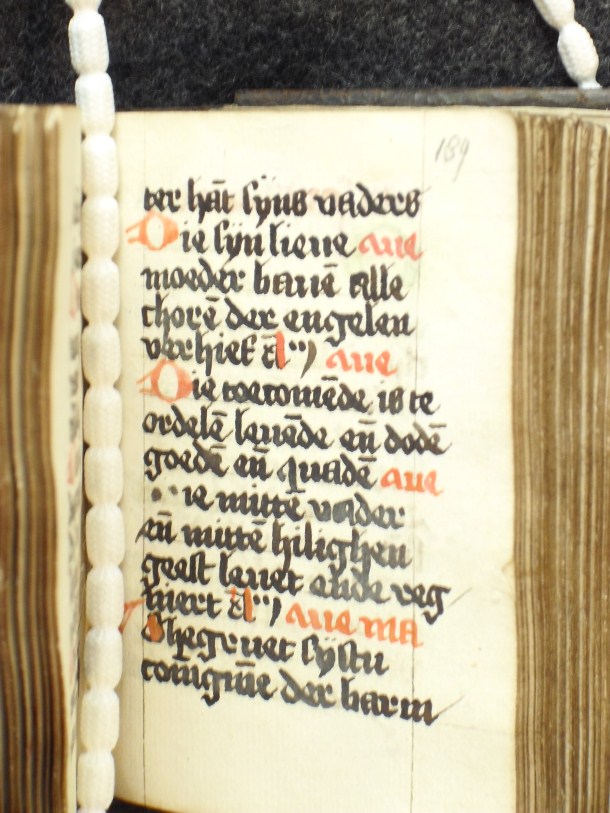 189
ter hāt sijns vaders
Die sijn lieue aue
moeder bauē alle
chorē der engelen
verhief aue
Die toecomēde is te
ordelē leuēde eñ dodē
goedē eñ quadē aue
ie mittē vader
eñ mittē hilighen
geest leuet ende reg
niert aue ma
Ghegruet sijstu
coniginne der barm